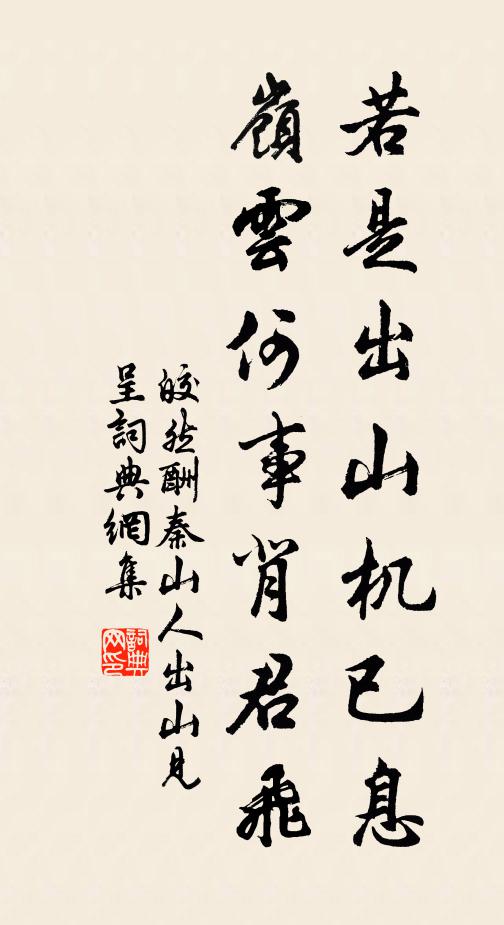 若是出山机已息
嶺雲何事背君飛
皎然酬秦山人出山見
呈詞典網集
詞典網印